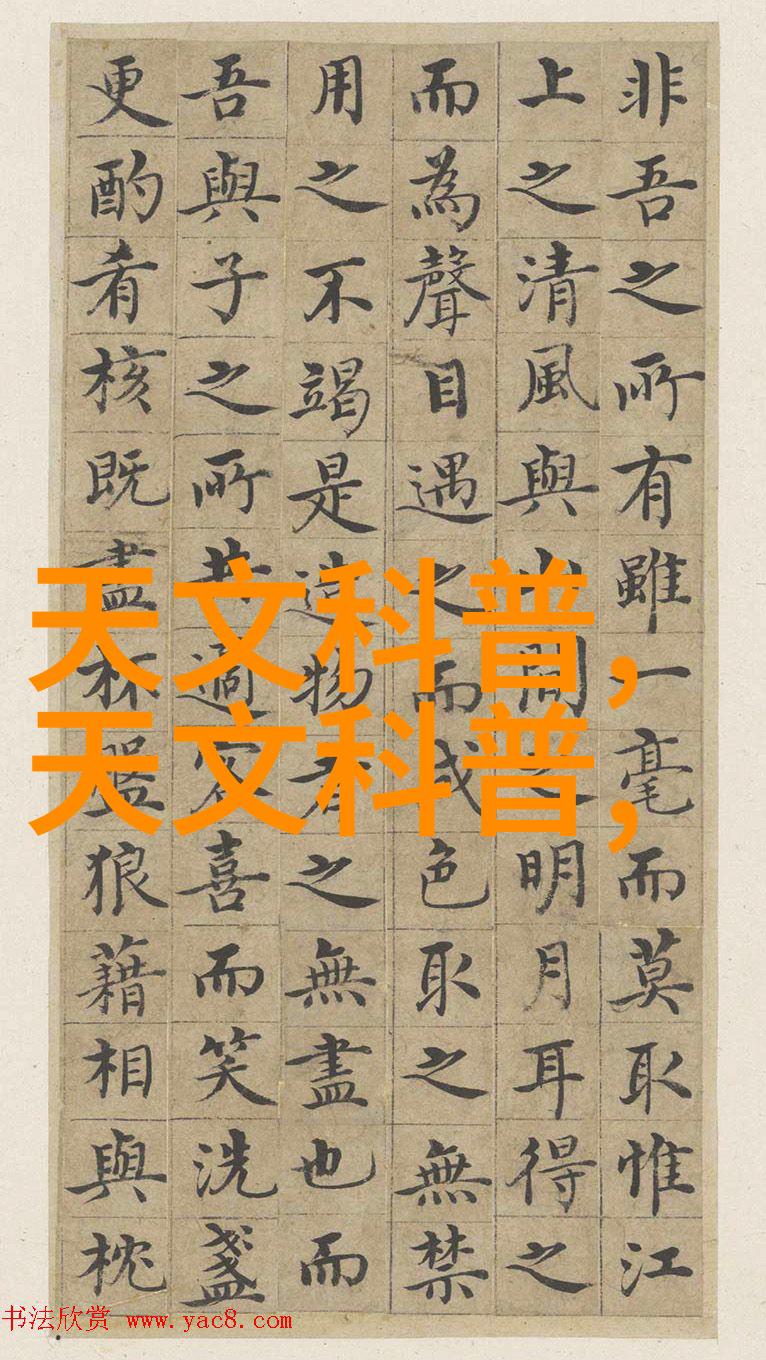 非吾之所有雖一毫而莫取惟江
上之清風與山間之明月耳得之
而為聲目遇之而成色取之無禁
用之不竭是造物者之無盡也而
吾與子之所共適客喜而笑洗盞
更酌肴核既盡杯盤狼藉相與枕
天文科普,
天文科普,
书法欣赏 www.yac8.com